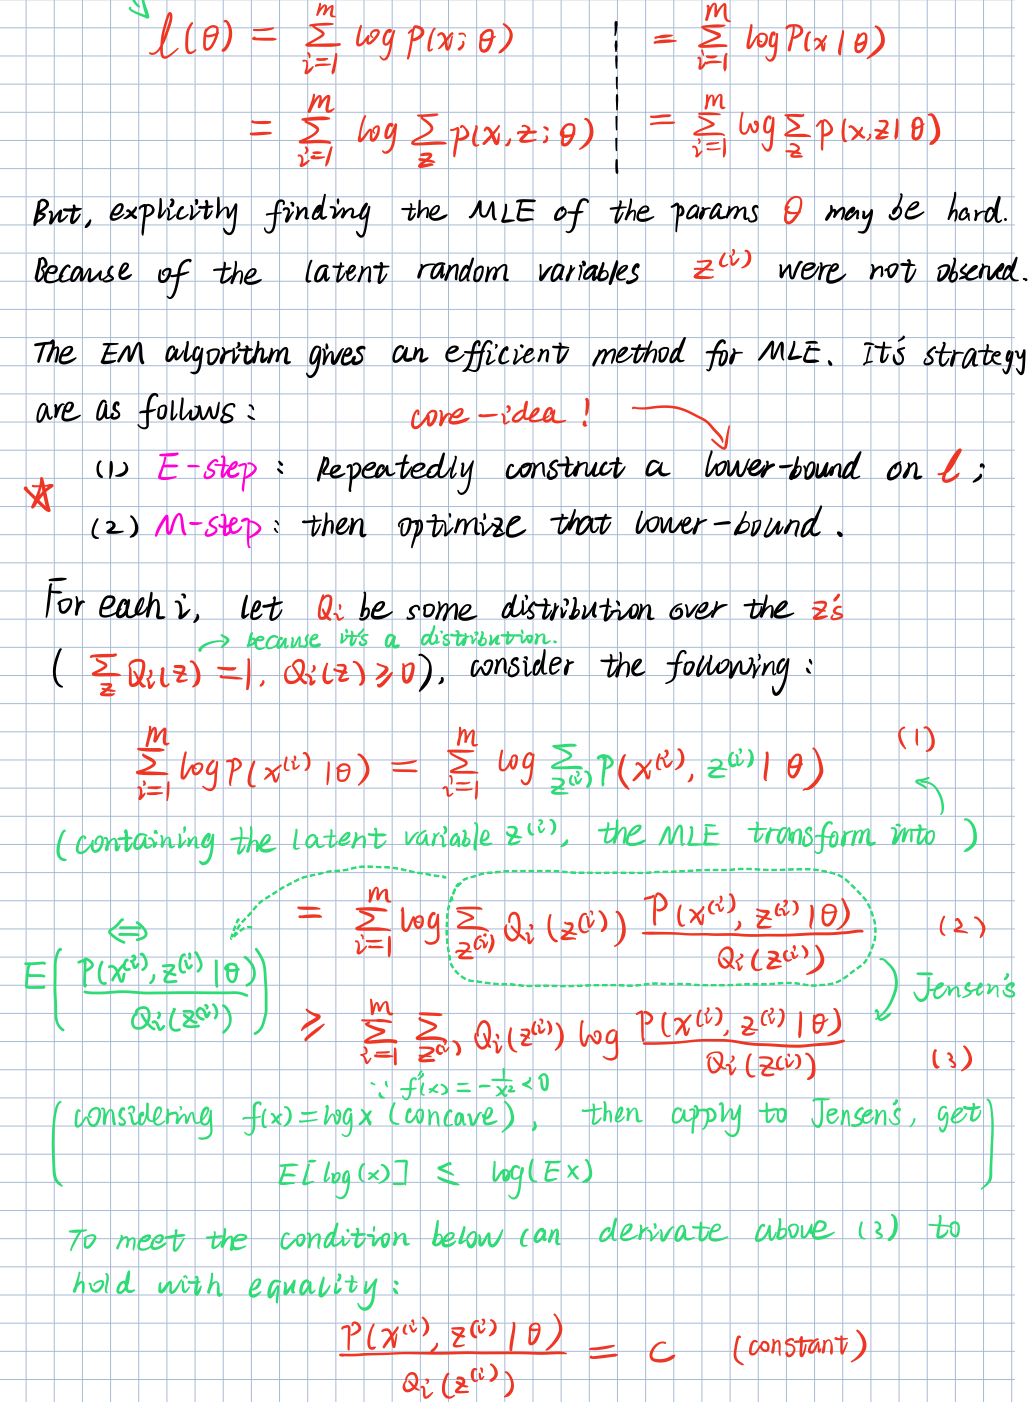 ℓ(θ) = Σ_{i=1}^{m} log P(x; θ) | = Σ_{i=1}^{m} log P(x | θ)
= Σ_{i=1}^{m} log Σ_z P(x, z; θ) | = Σ_{i=1}^{m} log Σ_z P(x, z | θ)
But, explicitly finding the MLE of the params θ may be hard.
Because of the latent random variables z^{(i)} were not observed.
The EM algorithm gives an efficient method for MLE. It's strategy
are as follows:
core-idea!
(1) E-step: Repeatedly construct a lower-bound on ℓ;
(2) M-step: then optimize that lower-bound.
For each i, let Q_i be some distribution over the z's
→ because it's a distribution.
( Σ_z Q_i(z) = 1, Q_i(z) ≥ 0 ), consider the following:
Σ_{i=1}^{m} log P(x^{(i)} | θ) = Σ_{i=1}^{m} log Σ_{z^{(i)}} P(x^{(i)}, z^{(i)} | θ) (1)
(containing the latent variable z^{(i)}, the MLE transform into)
= Σ_{i=1}^{m} log Σ_{z^{(i)}} Q_i(z^{(i)}) P(x^{(i)}, z^{(i)} | θ) / Q_i(z^{(i)}) (2)
⇔
E( P(x^{(i)}, z^{(i)} | θ) / Q_i(z^{(i)}) )
Jensen's
≥ Σ_{i=1}^{m} Σ_{z^{(i)}} Q_i(z^{(i)}) log P(x^{(i)}, z^{(i)} | θ) / Q_i(z^{(i)}) (3)
∵ f''(x) = -1/x² < 0
(considering f(x) = log x (concave), then apply to Jensen's, get
E[log(x)] ≤ log(Ex) )
To meet the condition below can derivate above (3) to
hold with equality:
P(x^{(i)}, z^{(i)} | θ) / Q_i(z^{(i)}) = c (constant)